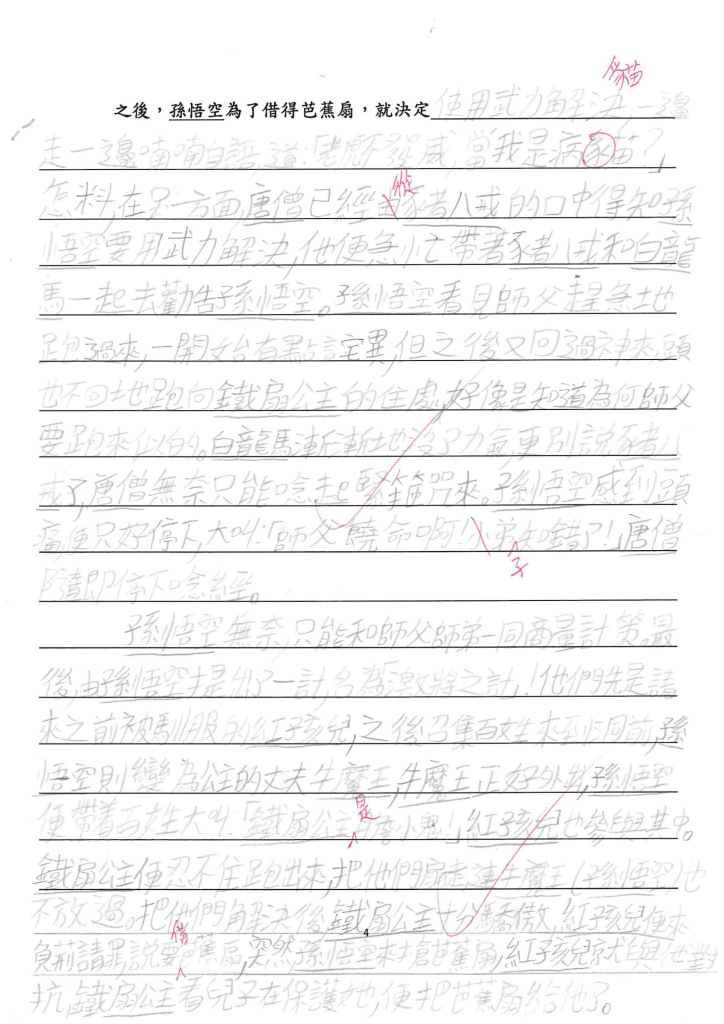 豸苗
之後，孫悟空為了借得芭蕉扇，就決定使用武力解決一邊
走一邊喃喃自語,道:「老虎不發威,當我是病豕苗?」
縱
怎料,在另一方面,唐僧已經由豬八戒的口中得知孫
悟空要用武力解決,他便急忙帶著豬八戒和白龍
馬一起去勸告孫悟空。孫悟空看見師父趕急地
跑過來,一開始有點詫異,但之後又回過神來,頭
也不回地跑向鐵扇公主的住處,好像是知道為何師父
要跑來似的。白龍馬漸漸地沒了力氣,更別說豬八
戒了,唐僧無奈只能唸起緊箍咒來。孫悟空感到頭
痛,便只好停下,大叫:「師父饒命啊!小弟知錯了!」唐僧
子
隨即停下唸經。
孫悟空無奈,只能和師父師弟一同商量計策,最
後,由孫悟空提出了一計,名為「激將之計」!他們先是請
來之前被馴服的紅孩兒,之後召集百姓來到洞前,孫
悟空則變為公主的丈夫牛魔王,牛魔王正好外出,孫悟空
便帶著百姓大叫:「鐵扇公主膽小鬼」,紅孩兒也參與其中。
是
鐵扇公主便忍不住跑出來,把他們扇走,連牛魔王(孫悟空)也
不放過。把他們解決後,鐵扇公主十分驕傲,紅孩兒便來
4
借
負荊請罪,說要芭蕉扇,突然孫悟空來搶芭蕉扇,紅孩兒就與他對
抗,鐵扇公主看兒子在保護她,便把芭蕉扇給他了。